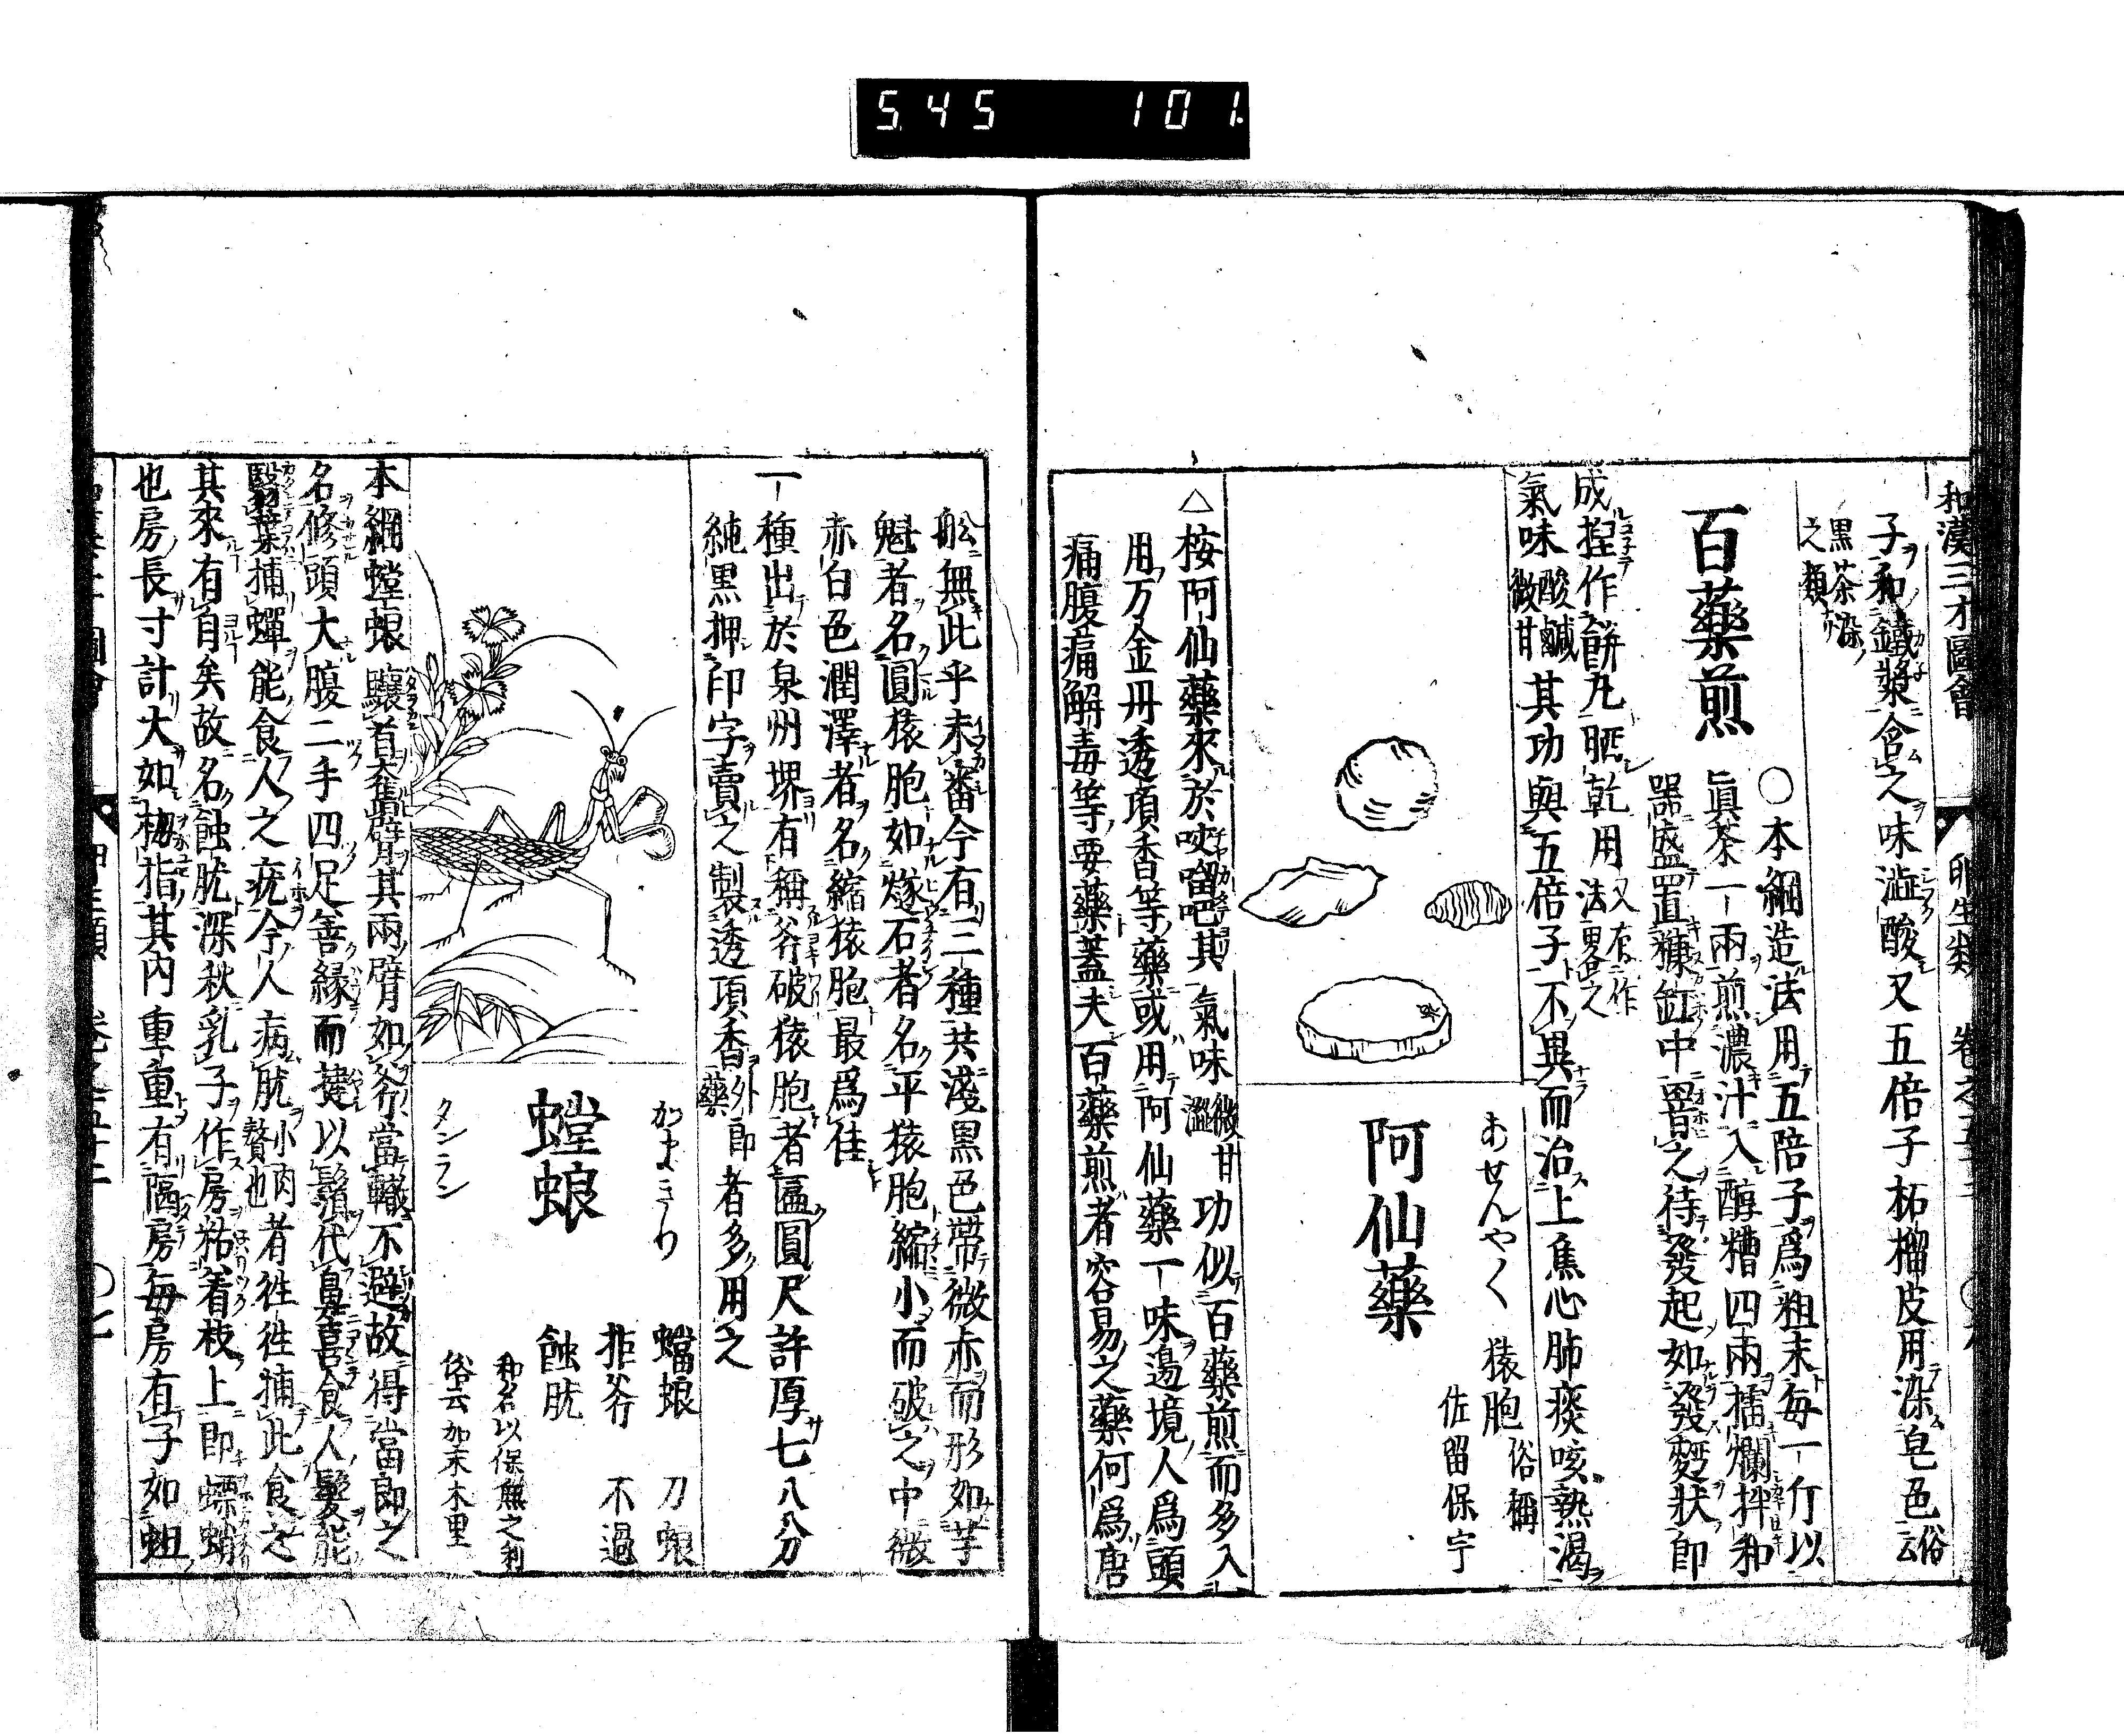 545 101
和漢三才圖會 卵生類 卷之五十二
子和鐵漿含之味澁酸又五倍子柘榴皮用染皂色俗云
黒茶染
之類
百藥煎
○本綱造法用五陪子爲粗末每一斤以
眞茶一兩煎濃汁入醇糟四兩擂爛拌和
器盛置糠缸中罯之待發起如發麪狀即
成揑作餅丸晒乾用又有二作
法畧之
氣味酸鹹
微甘其功與五倍子不異而治上焦心肺痰咳熱渴
阿仙藥
あせんやく
猿胞 俗稱
佐留保宇
△桉阿仙藥來於咬𠺕吧其氣味微甘
澁功似百藥煎而多入
用万金丹透頂香等藥或用阿仙藥一味邉境人爲頭
痛腹痛解毒等要藥蓋夫百藥煎者容易之藥何爲唐
舩無此乎未審今有三種共淺黒色帶微赤而形如芋
魁者名圓猿胞如燧石者名平猿胞縮小而破之中微
赤白色潤澤者名縮猿胞最爲佳
一種出於泉州堺有稱斧破猿胞者匾圓尺許厚七八分
純黒押印字賣之製透頂香外郎
藥者多用之
螳蜋
かまきり
タンラン
蟷蜋 刀蜋
拒斧 不過
蝕肬
和名以保無之利
俗云加末木里
本綱螳蜋驤首奮臂其兩臂如斧當轍不避故得當郎之
名修頭大腹二手四足善縁而捷以鬚代鼻喜食人髮能
翳葉捕蟬能食人之疣今人病肬小肉
贅也者徃徃捕此食之
其來有自矣故名蝕肬深秋乳子作房粘着枝上即螵蛸
也房長寸計大如拇指其内重重有隔房每房有子如蛆